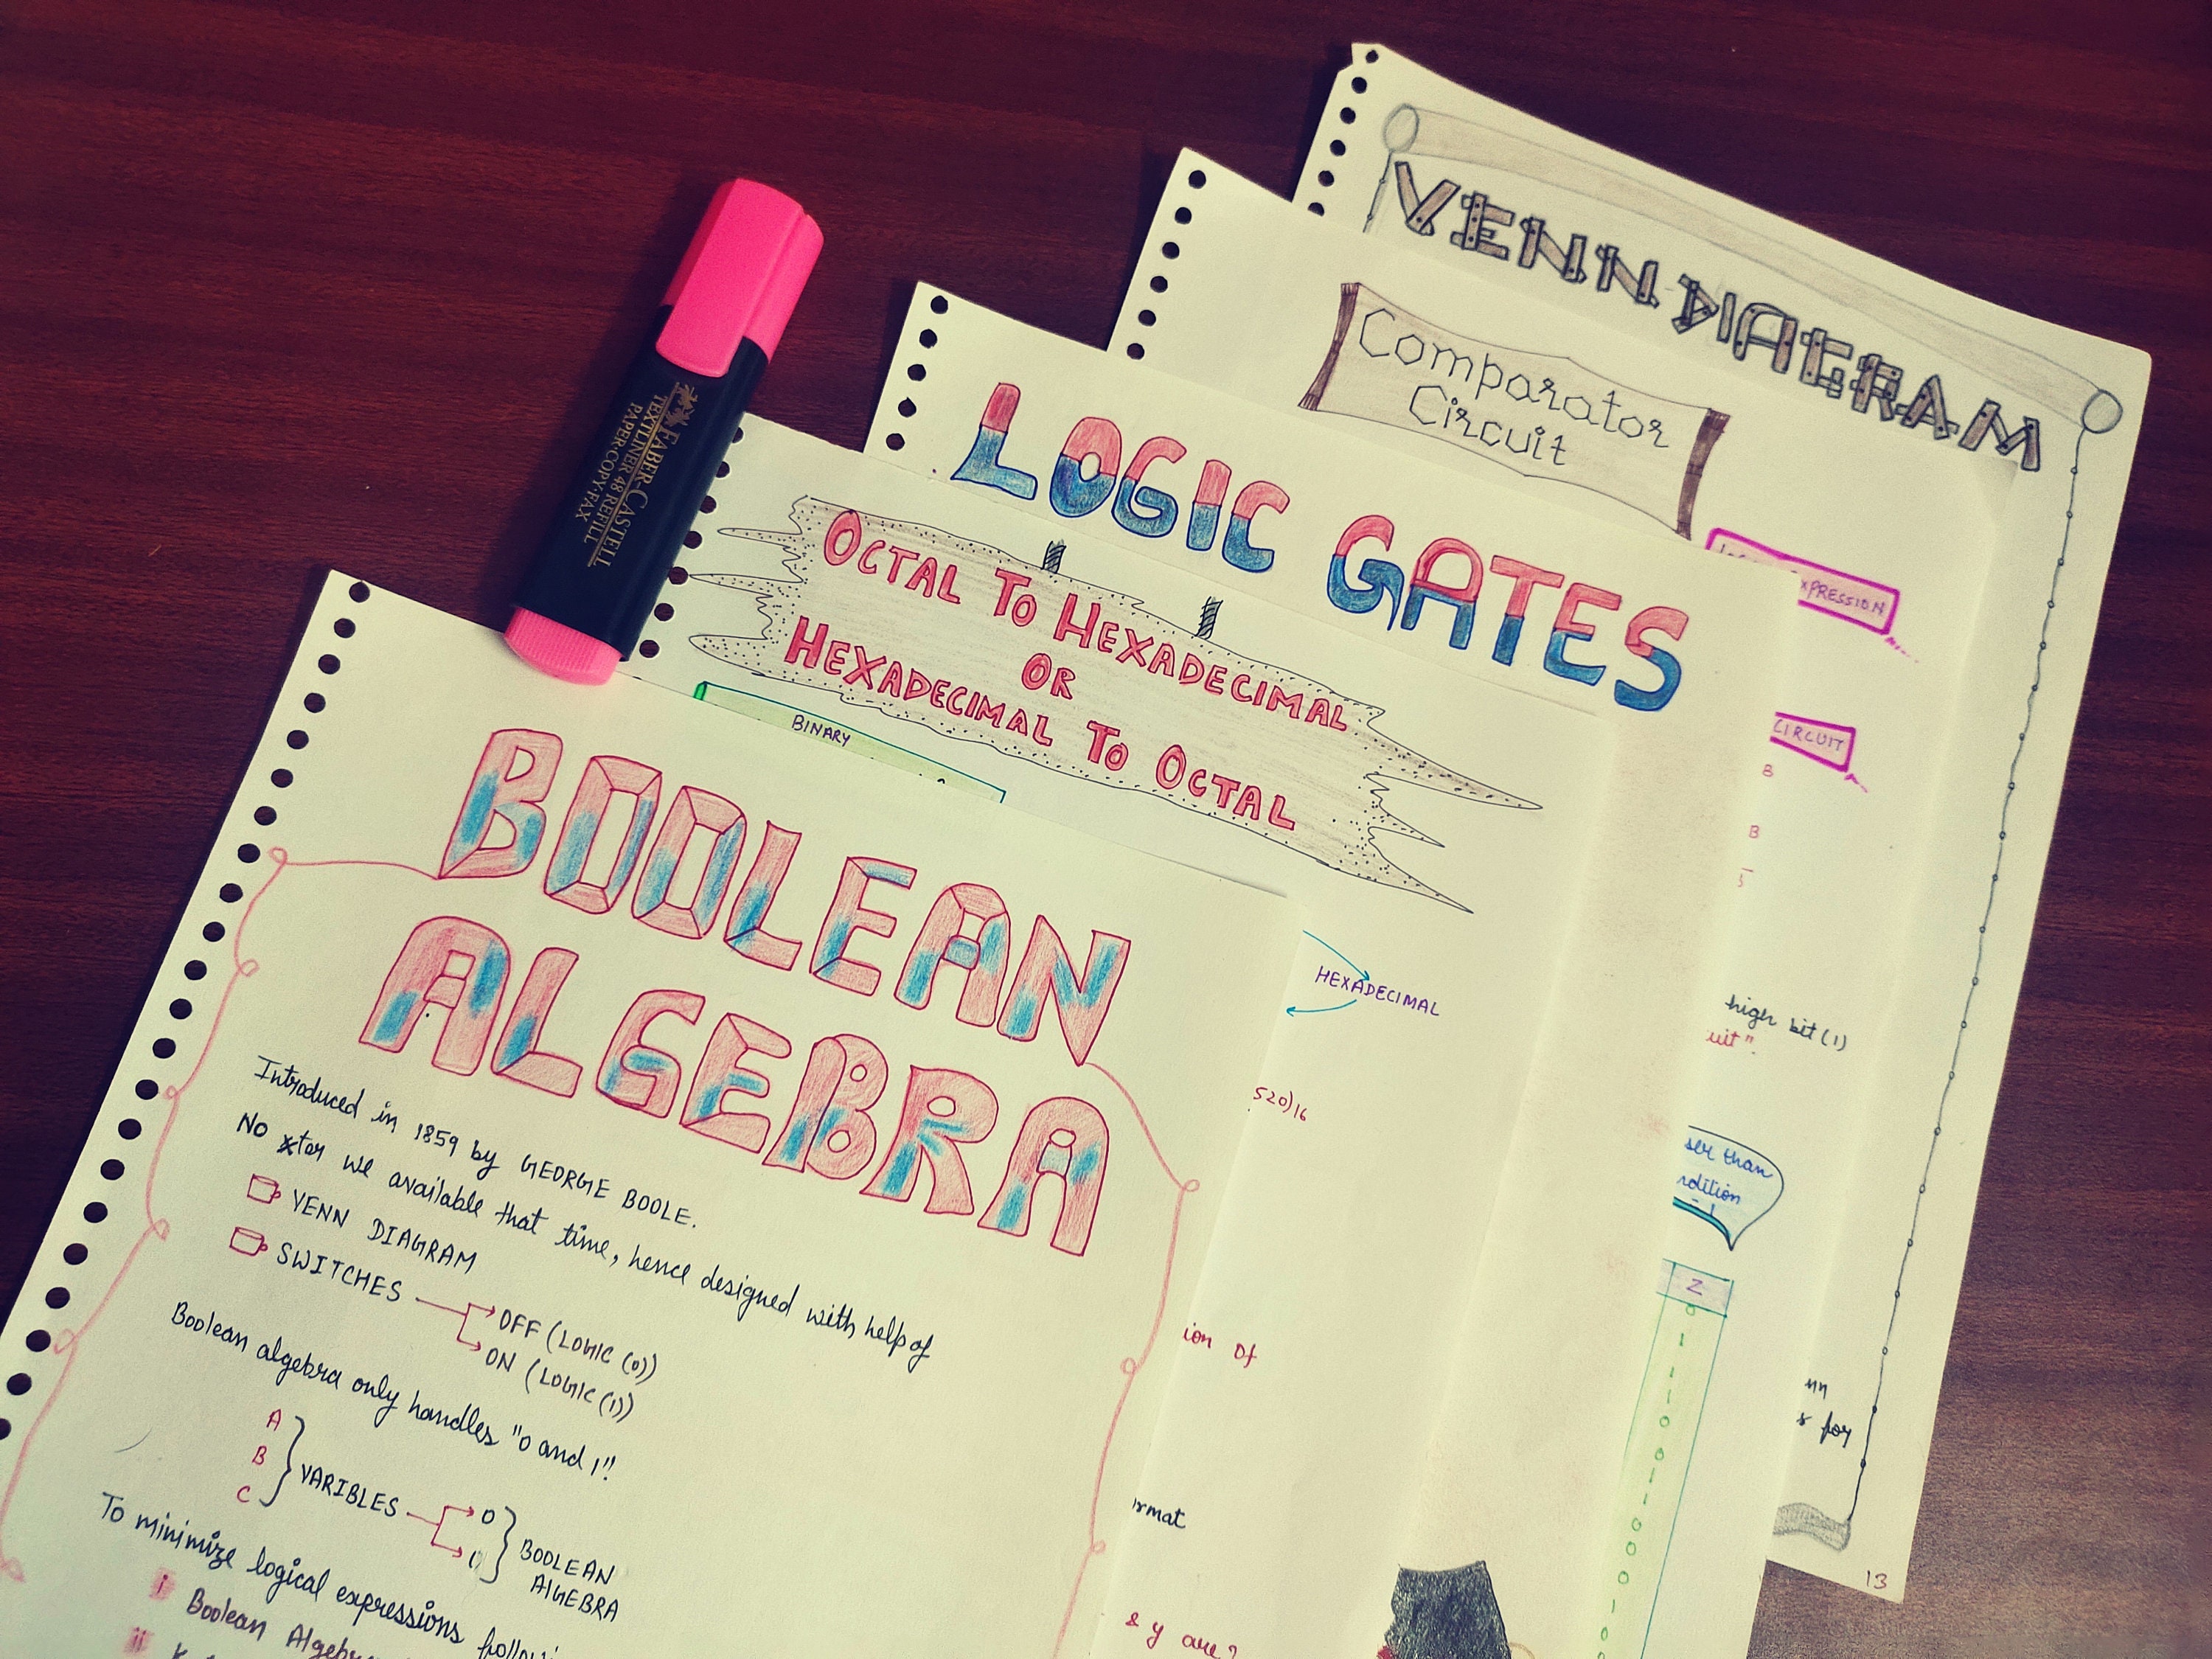 VENN DIAGRAM
Comparator
Circuit
XPRESSION
CIRCUIT
B
B
higher bit (1)
uit".
ser than
ndition
Z
0
1
1
1
0
0
1
1
0
0
0
1
0
s for
13
LOGIC GATES
OCTAL TO HEXADECIMAL
OR
HEXADECIMAL TO OCTAL
BINARY
HEXADECIMAL
520)16
ion of
rmat
& y are?
FABER-CASTELL
TEXTLINER 48 REFILL
PAPER·COPY·FAX
BOOLEAN
ALGEBRA
Introduced in 1859 by GEORGE BOOLE.
No xtor we available that time, hence designed with help of
VENN DIAGRAM
SWITCHES
OFF (LOGIC (0))
ON (LOGIC (1))
Boolean algebra only handles "0 and 1".
A
B
C
VARIBLES
0
1
BOOLEAN
ALGEBRA
To minimize logical expressions
i Boolean Algebra
ii